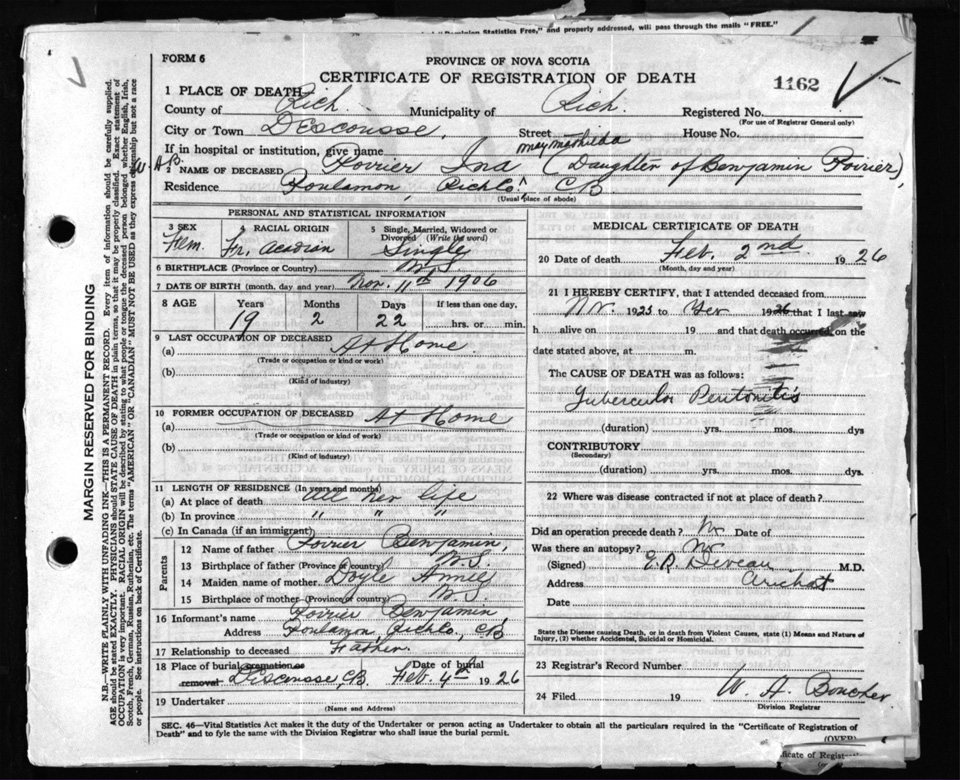 "Dominion Statistics Free," and properly addressed, will pass through the mails "FREE."
FORM 6
PROVINCE OF NOVA SCOTIA
CERTIFICATE OF REGISTRATION OF DEATH
1162
1 PLACE OF DEATH
County of Rich. Municipality of Rich. Registered No.
(For use of Registrar General only)
City or Town DEscousse, Street House No.
If in hospital or institution, give name May Mathilda
2 NAME OF DECEASED Poirier Ina (Daughter of Benjamin Poirier),
Residence Poulamon, Rich Co. CB
(Usual place of abode)
PERSONAL AND STATISTICAL INFORMATION
3 SEX 4 RACIAL ORIGIN 5 Single, Married, Widowed or
Divorced (Write the word)
Fem. Fr. Acadian Single
6 BIRTHPLACE (Province or Country) N.S.
7 DATE OF BIRTH (month, day and year) Nov. 11th 1906
8 AGE Years Months Days If less than one day,
19 2 22 ....hrs. or .....min.
9 LAST OCCUPATION OF DECEASED
(a) At Home.
(Trade or occupation or kind or work)
(b)
(Kind of industry)
10 FORMER OCCUPATION OF DECEASED
(a) At Home
(Trade or occupation or kind of work)
(b)
(Kind of industry)
11 LENGTH OF RESIDENCE (In years and months)
(a) At place of death All her life
(b) In province " " "
(c) In Canada (if an immigrant)
Parents
12 Name of father Poirier Benjamin,
13 Birthplace of father (Province or country) N.S.
14 Maiden name of mother Doyle Amie
15 Birthplace of mother (Province or country) N.S.
16 Informant's name Poirier Benjamin
Address Poulamon, Rich Co., CB
17 Relationship to deceased Father.
18 Place of burial cremation or removal Date of burial
Discousse, CB. Feb. 4th 1926
19 Undertaker
(Name and Address)
MEDICAL CERTIFICATE OF DEATH
20 Date of death Feb. 2nd. 1926
(Month, day and year)
21 I HEREBY CERTIFY, that I attended deceased from
1925 to 1926 that I last saw
h alive on 19 and that death occurred, on the
date stated above, at m.
The CAUSE OF DEATH was as follows:
Tubercular Peritonitis
(duration) yrs. mos. dys
CONTRIBUTORY
(Secondary)
(duration) yrs. mos. dys
22 Where was disease contracted if not at place of death?
Did an operation precede death? No Date of
Was there an autopsy? No
(Signed) E.R. Deveau M.D.
Address Arichat
Date
State the Disease causing Death, or in death from Violent Causes, state (1) Means and Nature of
Injury, (2) whether Accidental, Suicidal or Homicidal.
23 Registrar's Record Number
24 Filed 19 W. A. Boucher
Division Registrar
SEC. 46—Vital Statistics Act makes it the duty of the Undertaker or person acting as Undertaker to obtain all the particulars required in the "Certificate of Registration of
Death" and to fyle the same with the Division Registrar who shall issue the burial permit.
(OVER)
MARGIN RESERVED FOR BINDING
N.B.—WRITE PLAINLY WITH UNFADING INK—THIS IS A PERMANENT RECORD. Every item of information should be carefully supplied.
AGE should be stated EXACTLY. PHYSICIANS should STATE CAUSE OF DEATH in plain terms, so that it may be properly classified. Exact statement of
OCCUPATION is very important. RACIAL ORIGIN will be described by stating to what people or tongue the deceased person belonged whether English, Irish,
Scotch, French, German, Russian, Ruthenian, etc. The terms "AMERICAN" OR "CANADIAN" MUST NOT BE USED as they express citizenship but not a race
or people. See instructions on back of Certificate.